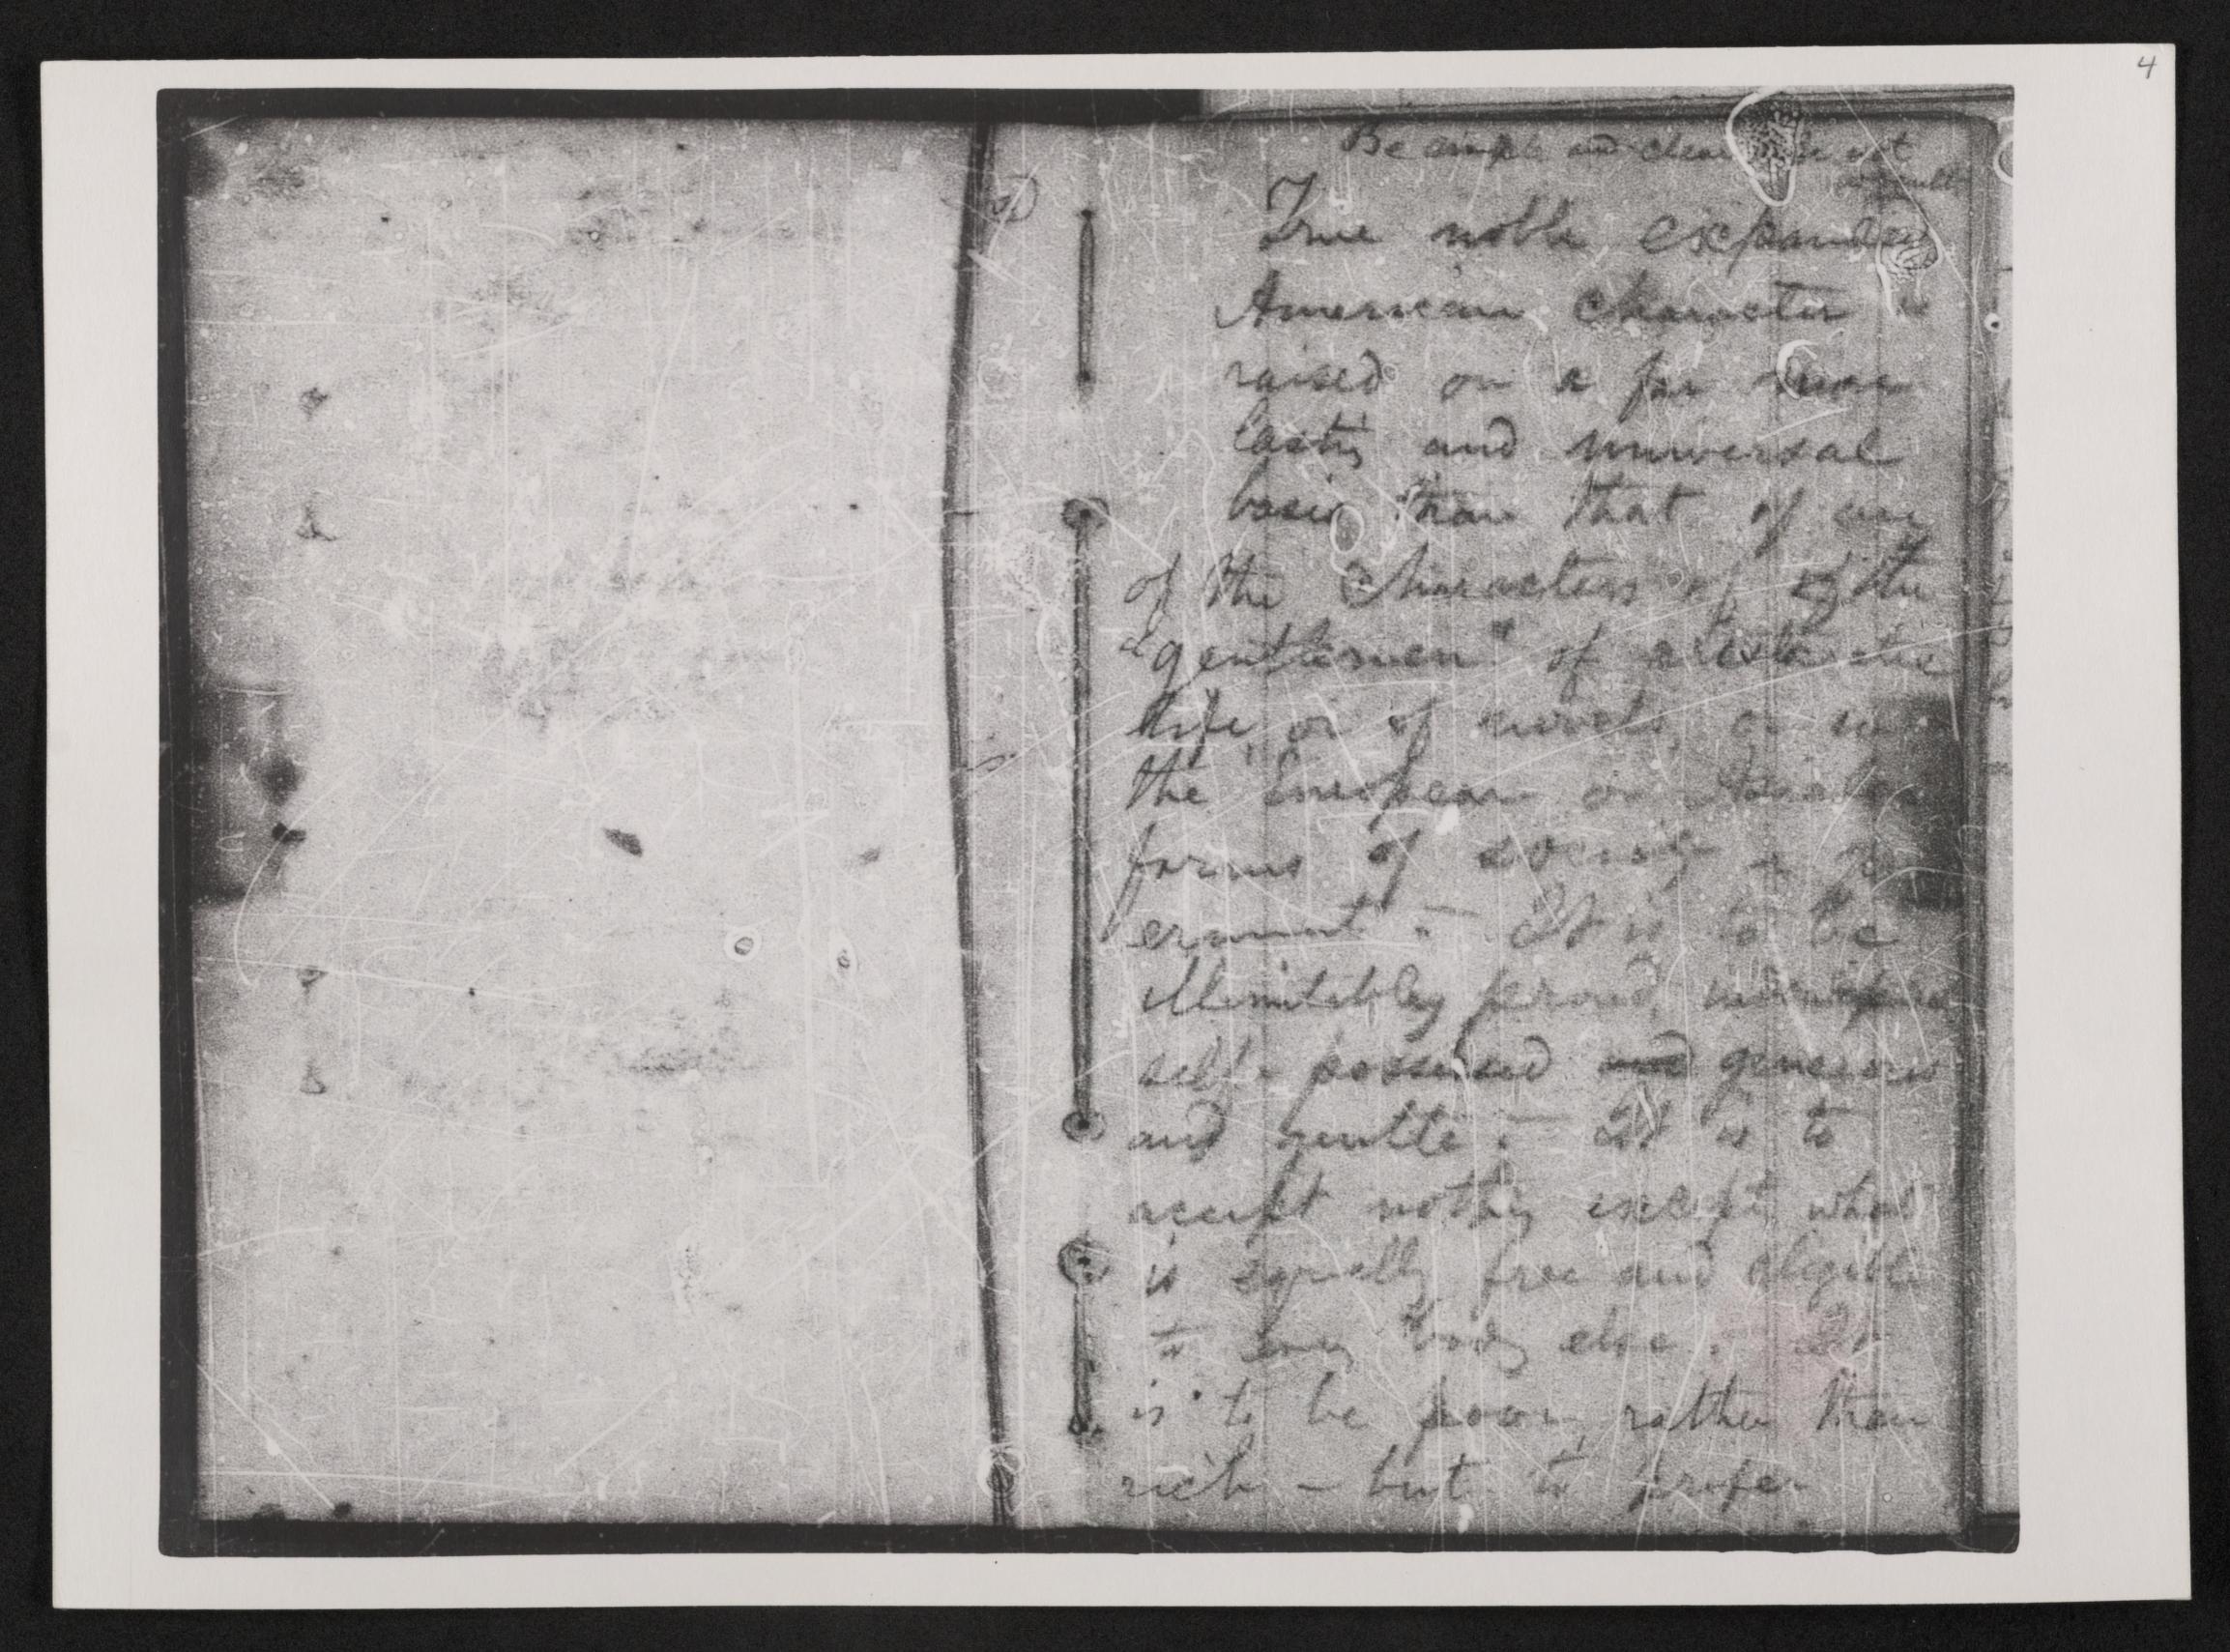 4
Be simple and clear. — Be not
occult
True noble expanded
American character is
raised on a far more
lasting and universal
basis than that of any
of the characters of the
"gentlemen" of aristocratic
life, or of novels, or
the European or Asiatic
forms of society or
ernment. — It is to be
illimitably proud, independent
self-possessed and generous
and gentle. — It is to
accept nothing except what
is equally free and eligible
to every body else. It
is to be poor, rather than
rich — but to prefer